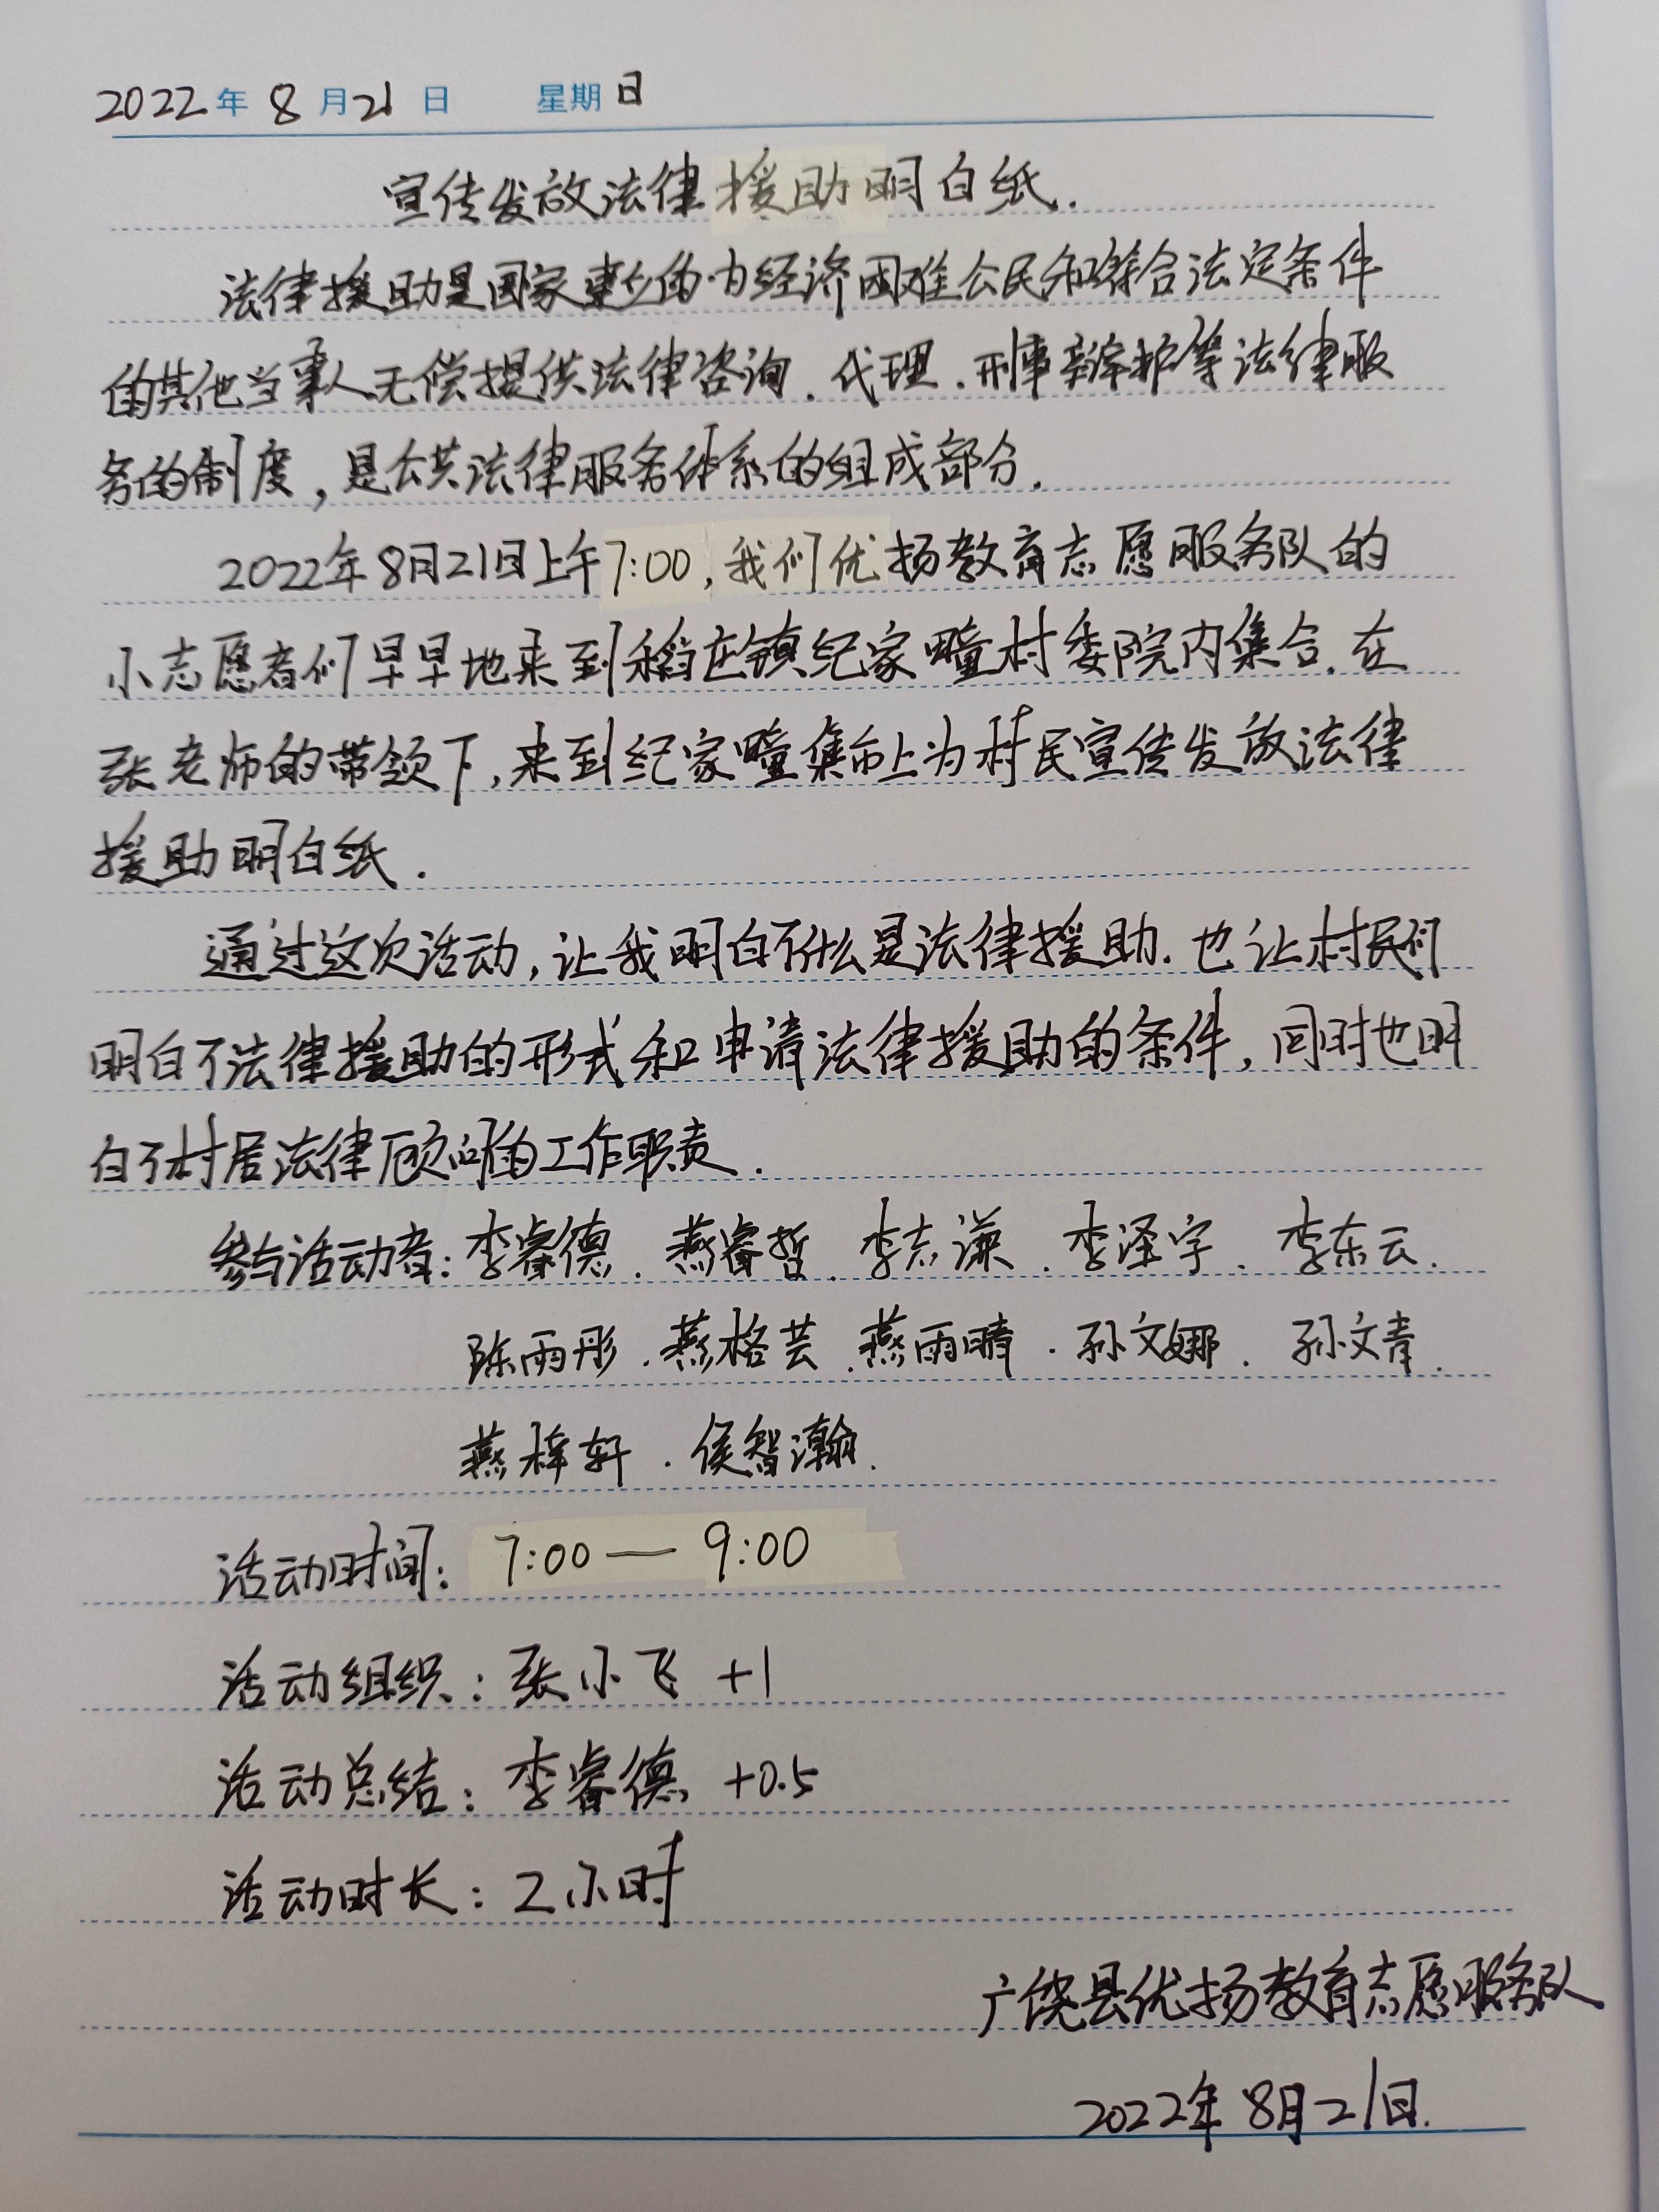 2022年8月21日 星期日
宣传发放法律援助明白纸.
法律援助是国家建立的为经济困难公民和符合法定条件
的其他当事人无偿提供法律咨询、代理、刑事辩护等法律服
务的制度,是公共法律服务体系的组成部分.
2022年8月21日上午7:00,我们优扬教育志愿服务队的
小志愿者们早早地来到稻庄镇纪家疃村委院内集合.在
张老师的带领下,来到纪家疃集市上为村民宣传发放法律
援助明白纸.
通过这次活动,让我明白了什么是法律援助.也让村民们
明白了法律援助的形式和申请法律援助的条件,同时也明
白了村居法律顾问的工作职责.
参与活动者:李睿德、燕睿哲、李志谦、李泽宇、李东云、
陈雨彤、燕格芸、燕雨晴、孙文娜、孙文青、
燕梓轩、侯智瀚.
活动时间:7:00—9:00
活动组织:张小飞 +1
活动总结:李睿德 +0.5
活动时长:2小时
广饶县优扬教育志愿服务队
2022年8月21日.